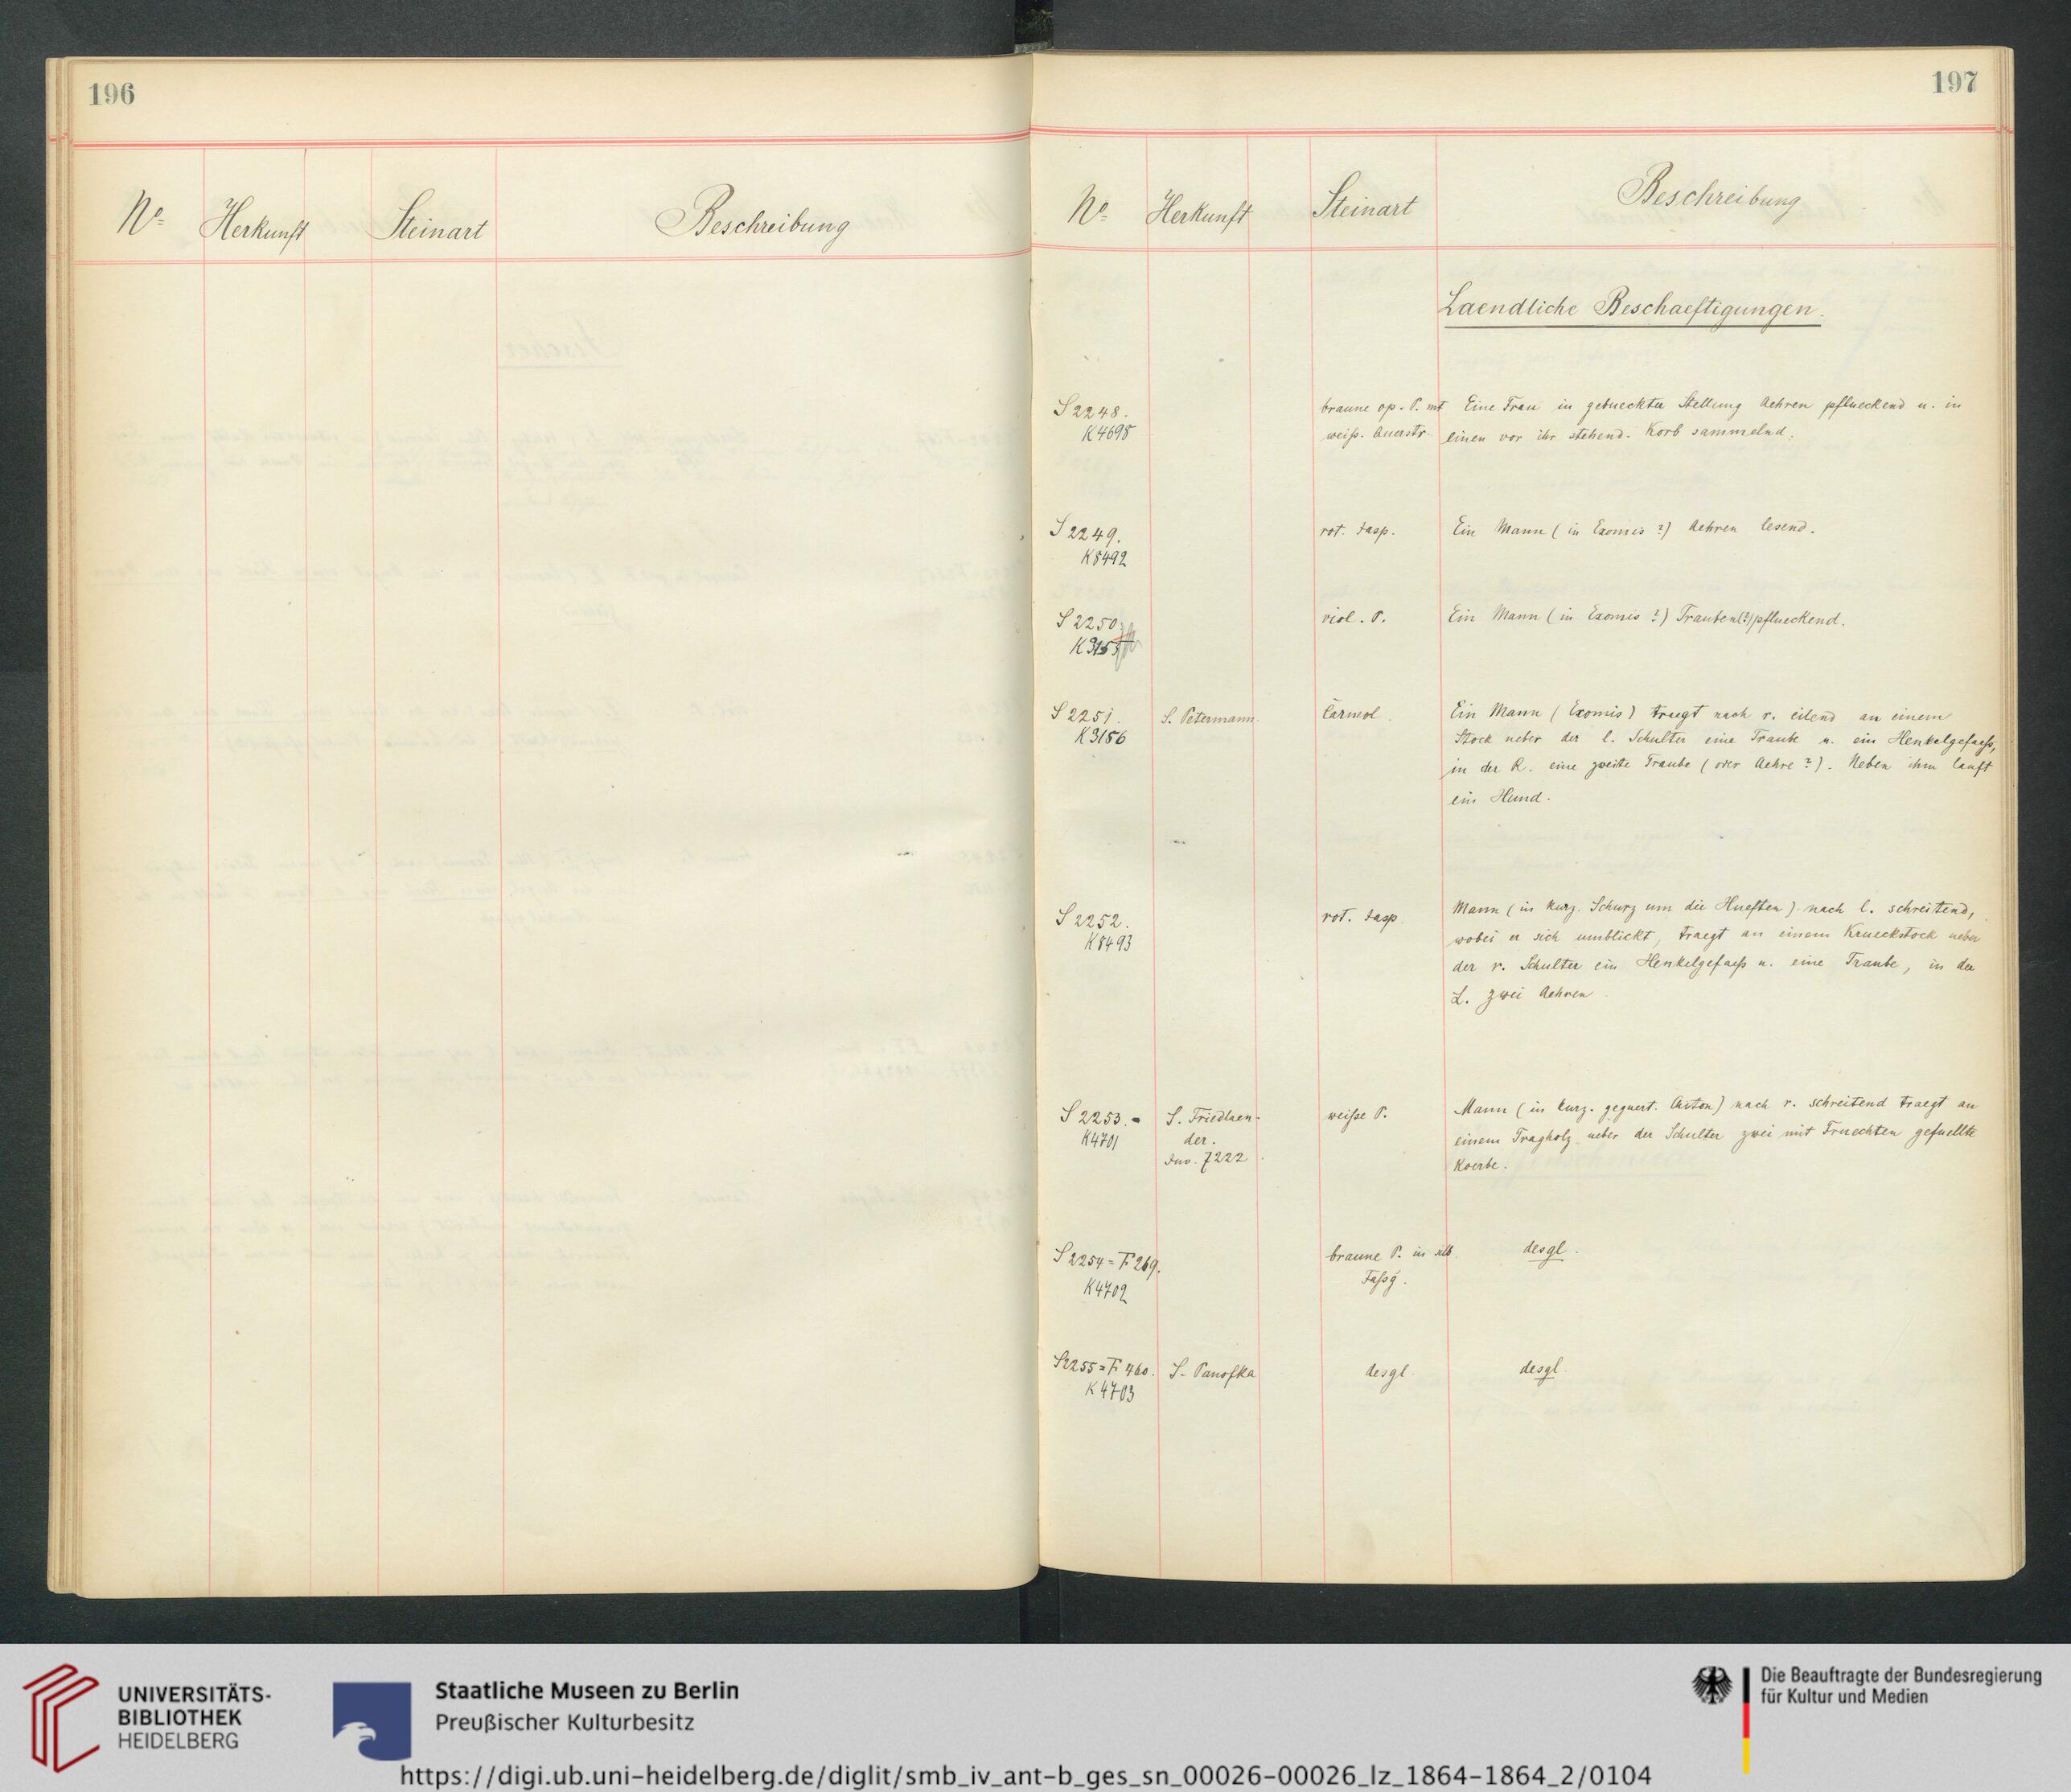 196
Nº Herkunft Steinart Beschreibung
197
Nº Herkunft Steinart Beschreibung
Laendliche Beschaeftigungen.
S 2248. braune op. P. mt Eine Frau in gebueckter Stellung Aehren pflueckend u. in
K4698 weiß. Querstr. einen vor ihr stehend. Korb sammelnd.
S 2249. rot. Jasp. Ein Mann (in Exomis ?) Aehren lesend.
K8492
S 2250. viol. P. Ein Mann (in Exomis ?) Trauben(?) pflueckend.
K3155
S 2251. S. Petermann. Carneol. Ein Mann (Exomis) traegt nach r. eilend an einem
K3156 Stock ueber der l. Schulter eine Traube u. ein Henkelgefaeß,
in der R. eine zweite Traube (oder Aehre ?). Neben ihm lauft
ein Hund.
S 2252. rot. Jasp. Mann (in kurz. Schurz um die Hueften) nach l. schreitend,
K8493 wobei er sich umblickt, traegt an einem Krueckstock ueber
der r. Schulter ein Henkelgefaeß u. eine Traube, in der
L. zwei Aehren
S 2253. S. Friedlaen- weiße P. Mann (in kurz. geguert. Chiton) nach r. schreitend traegt an
K4701 der. einem Tragholz ueber der Schulter zwei mit Fruechten gefuellte
Inv. 7222 Koerbe.
S 2254 = F 269. braune P. in silb. desgl.
K4702 Faßg.
S 2255 = F 460. S. Panofka desgl. desgl.
K4703
UNIVERSITÄTS-
BIBLIOTHEK
HEIDELBERG
Staatliche Museen zu Berlin
Preußischer Kulturbesitz
Die Beauftragte der Bundesregierung
für Kultur und Medien
https://digi.ub.uni-heidelberg.de/diglit/smb_iv_ant-b_ges_sn_00026-00026_lz_1864-1864_2/0104